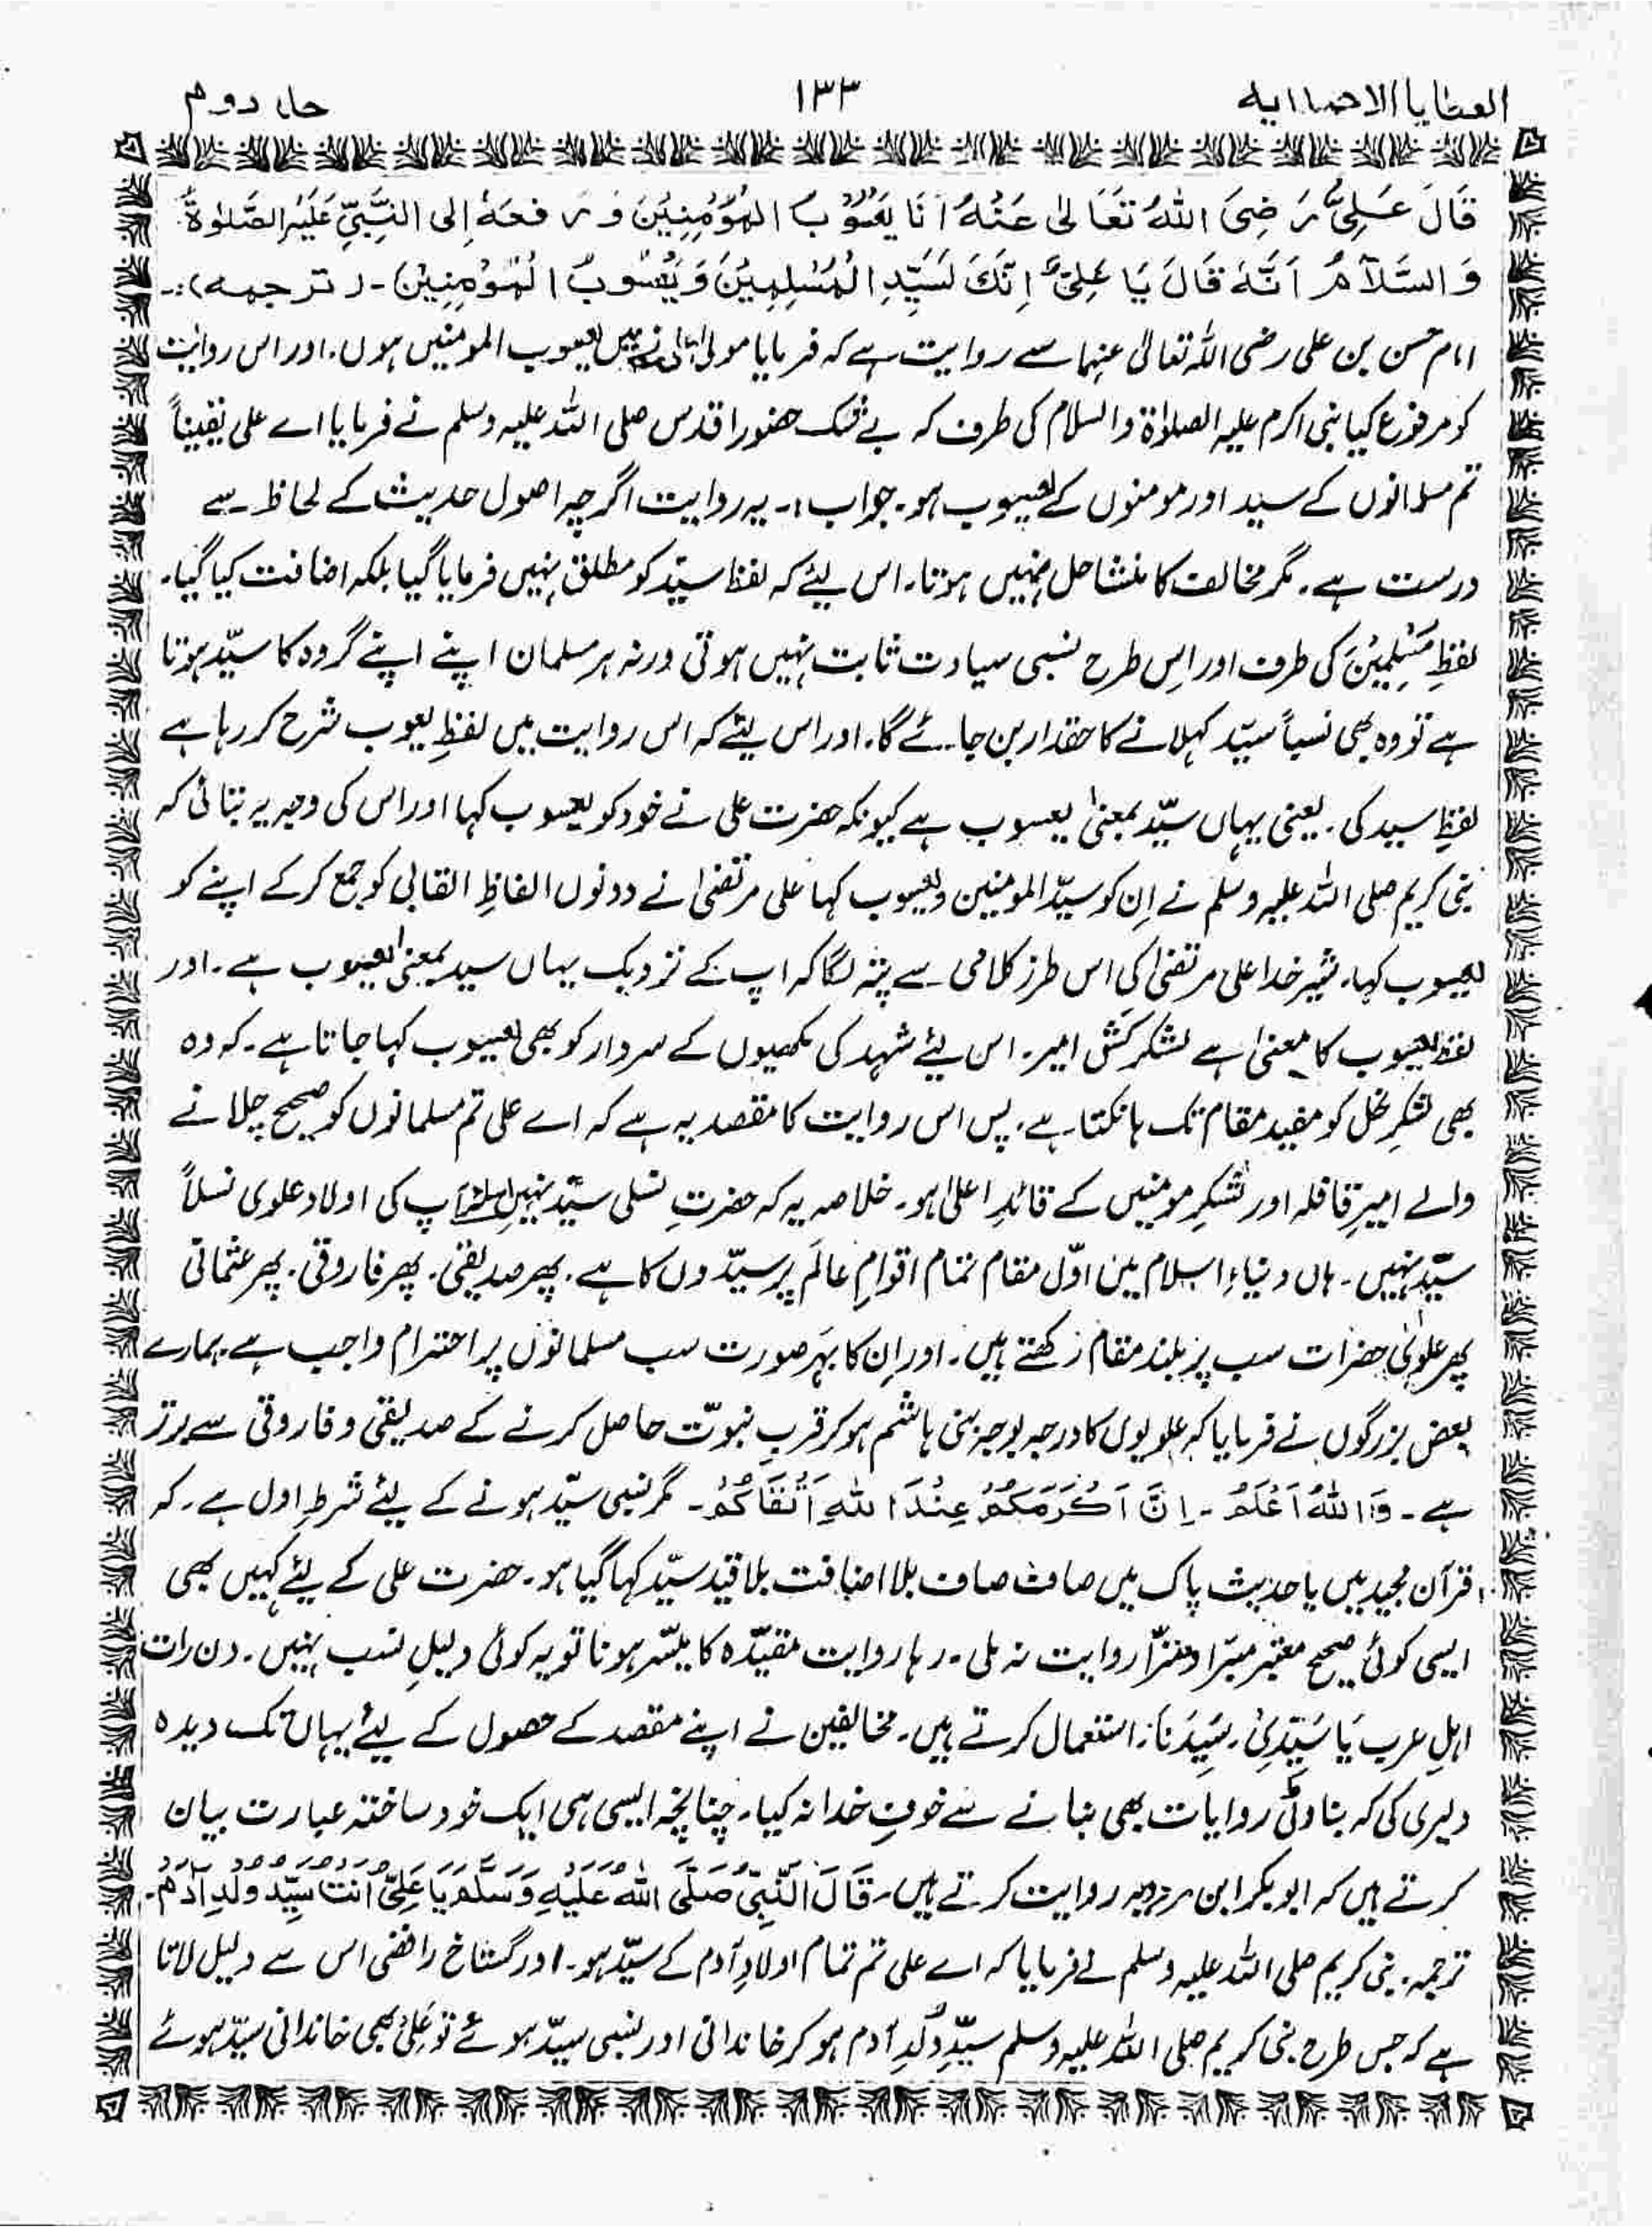 العطایا الاحمدیه ۱۳۳ جلد دوم
قَالَ عَلِيٌّ رَضِیَ اللهُ تَعَالٰی عَنْهُ اَنَا یَعْسُوْبُ الْمُؤْمِنِیْنَ وَرَفَعَهٗ اِلی النَّبِیِّ عَلَیْهِ الصَّلٰوةُ
وَالسَّلَامُ اَنَّهٗ قَالَ یَا عَلِیُّ اِنَّكَ لَسَیِّدِ الْمُسْلِمِیْنَ وَیَعْسُوْبُ الْمُؤْمِنِیْنَ)۔ (ترجمه):۔
امام حسن بن علی رضی اللہ تعالیٰ عنہما سے روایت ہے کہ فرمایا مولیٰ علی نے میں یعسوب المومنین ہوں۔ اور اس روایت
کو مرفوع کیا نبی اکرم علیہ الصلوٰۃ والسلام کی طرف کہ بے شک حضور اقدس صلی اللہ علیہ وسلم نے فرمایا اے علی یقیناً
تم مسلمانوں کے سید اور مومنوں کے یعسوب ہو۔ جواب :۔ یہ روایت اگرچہ اصول حدیث کے لحاظ سے
درست ہے۔ مگر مخالف کا منشا حل نہیں ہوتا۔ اس لیئے کہ لفظ سیّد کو مطلق نہیں فرمایا گیا بلکہ اضافت کیا گیا۔
لفظِ مُسْلِمِیْنَ کی طرف اور اِس طرح نسبی سیادت ثابت نہیں ہوتی ورنہ ہر مسلمان اپنے اپنے گروہ کا سیّد ہوتا
ہے تو وہ بھی نسباً سیّد کہلانے کا حقدار بن جائے گا۔ اور اس لیئے کہ اس روایت میں لفظِ یعسوب شرح کر رہا ہے
لفظِ سید کی۔ یعنی یہاں سیّد بمعنیٰ یعسوب ہے کیونکہ حضرت علی نے خود کو یعسوب کہا اور اس کی وجہ یہ بتائی کہ
نبی کریم صلی اللہ علیہ وسلم نے اِن کو سیّد المومنین و یعسوب کہا علی مرتضیٰ نے دونوں الفاظِ القابی کو جمع کرکے اپنے کو
یعسوب کہا۔ شیر خدا علی مرتضیٰ کی اس طرز کلامی سے پتہ لگا کہ اپ کے نزدیک یہاں سید بمعنیٰ یعسوب ہے۔ اور
لفظ یعسوب کا معنیٰ ہے لشکر کَش امیر۔ اس لیئے شہد کی مکھیوں کے سردار کو بھی یعسوب کہا جاتا ہے۔ کہ وہ
بھی لشکرِ نحل کو مفید مقام تک ہانکتا ہے۔ پس اس روایت کا مقصد یہ ہے کہ اے علی تم مسلمانوں کو صحیح چلانے
والے امیرِ قافلہ اور لشکرِ مومنین کے قائدِ اعلیٰ ہو۔ خلاصہ یہ کہ حضرتِ نسلی سیّد نہیں اسلئے آپ کی اولاد علوی نسلاً
سیّد نہیں۔ ہاں دنیاءِ اسلام میں اوّل مقام تمام اقوامِ عالَم پر سیّدوں کا ہے۔ پھر صدیقی۔ پھر فاروقی۔ پھر عثمانی
پھر علوی حضرات سب پر بلند مقام رکھتے ہیں۔ اور اِن کا بہَر صورت سب مسلمانوں پر احترام واجب ہے۔ ہمارے
بعض بزرگوں نے فرمایا کہ علویوں کا درجہ بوجہ بنی ہاشم ہو کر قربِ نبوّت حاصل کرنے کے صدیقی و فاروقی سے برتر
ہے۔ وَاللهُ اَعْلَمُ۔ اِنَّ اَكْرَمَكُمْ عِنْدَ اللهِ اَتْقَاكُمْ۔ مگر نسبی سیّد ہونے کے لیئے شرطِ اول ہے۔ کہ
قرآن مجید میں یا حدیث پاک میں صاف صاف بلا اضافت بلا قید سیّد کہا گیا ہو۔ حضرت علی کے لیئے کہیں بھی
ایسی کوئی صحیح معتبر مبَرّا و معَرّا روایت نہ ملی۔ رہا روایت مقیّدہ کا میسّر ہونا تو یہ کوئی دلیلِ نسب نہیں۔ دن رات
اہلِ عرب یَا سَیِّدِیْ۔ سَیِّدَنَا۔ استعمال کرتے ہیں۔ مخالفین نے اپنے مقصد کے حصول کے لیئے یہاں تک دیدہ
دلیری کی کہ بناوٹی روایات بھی بنانے سے خوفِ خدا نہ کیا۔ چنانچہ ایسی ہی ایک خود ساختہ عبارت بیان
کرتے ہیں کہ ابوبکر ابن مردویہ روایت کرتے ہیں۔ قَالَ النَّبِیُّ صَلَّی اللهُ عَلَیْهِ وَسَلَّمَ یَا عَلِیُّ اَنْتَ سَیِّدُ وُلْدِ اٰدَمَ۔
ترجمہ۔ نبی کریم صلی اللہ علیہ وسلم نے فرمایا کہ اے علی تم تمام اولادِ آدم کے سیّد ہو۔ اور گستاخ رافضی اس سے دلیل لاتا
ہے کہ جس طرح نبی کریم صلی اللہ علیہ وسلم سیّدِ وُلدِ آدم ہو کر خاندانی اور نسبی سیّد ہوئے تو علیؓ بھی خاندانی سیّد ہوئے